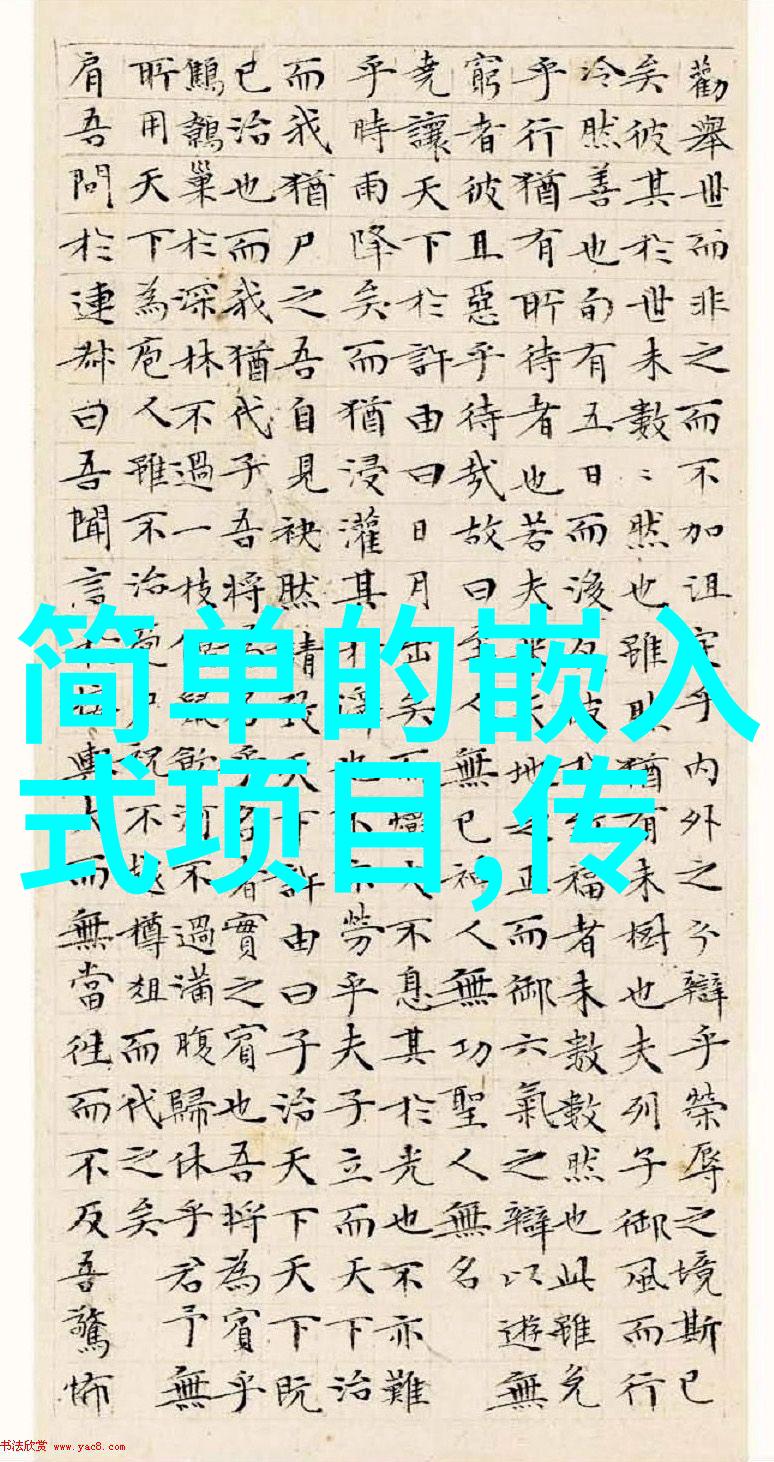 简单的嵌入
式项目,传
勸舉世而非之而不加沮定乎内外之分辯乎榮辱之境斯已
矣彼其於世未數〻然也雖然猶有未樹也夫列子御風而行
冷然善也旬有五日而後反彼於福者未數數然也此雖免
乎行猶有所待者也若夫乘天地之正而御六氣之辯以遊無
窮者彼且惡乎待哉故曰至人無已神人無功聖人無名
堯讓天下於許由曰日月出矣而爝火不息其於光也不亦難
乎時雨降矣而猶浸灌其於澤也不亦勞乎夫子立而天下治
而我猶尸之吾自見缺然請致天下許由曰子治天下天下既
已治也而我猶代子吾將名乎名者實之賓也吾將為賓乎
鷦鷯巢於深林不過一枝偃鼠飲河不過滿腹歸休乎君予無
所用天下為庖人雖不治庖尸祝不越樽俎而代之矣
肩吾問於連叔曰吾聞言於接輿大而無當往而不反吾驚怖
书法欣赏 www.yac8.com